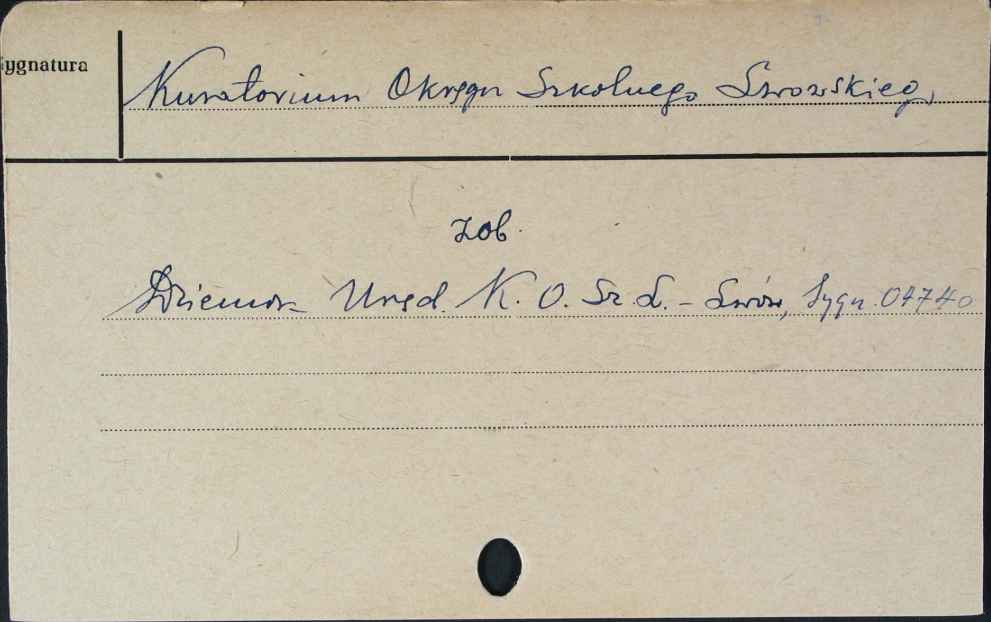 Sygnatura
Kuratorium Okręgu Szkolnego Lwowskiego
zob.
Dziennik Urzęd. K. O. Sz. L. - Lwów, Sygn. 04740